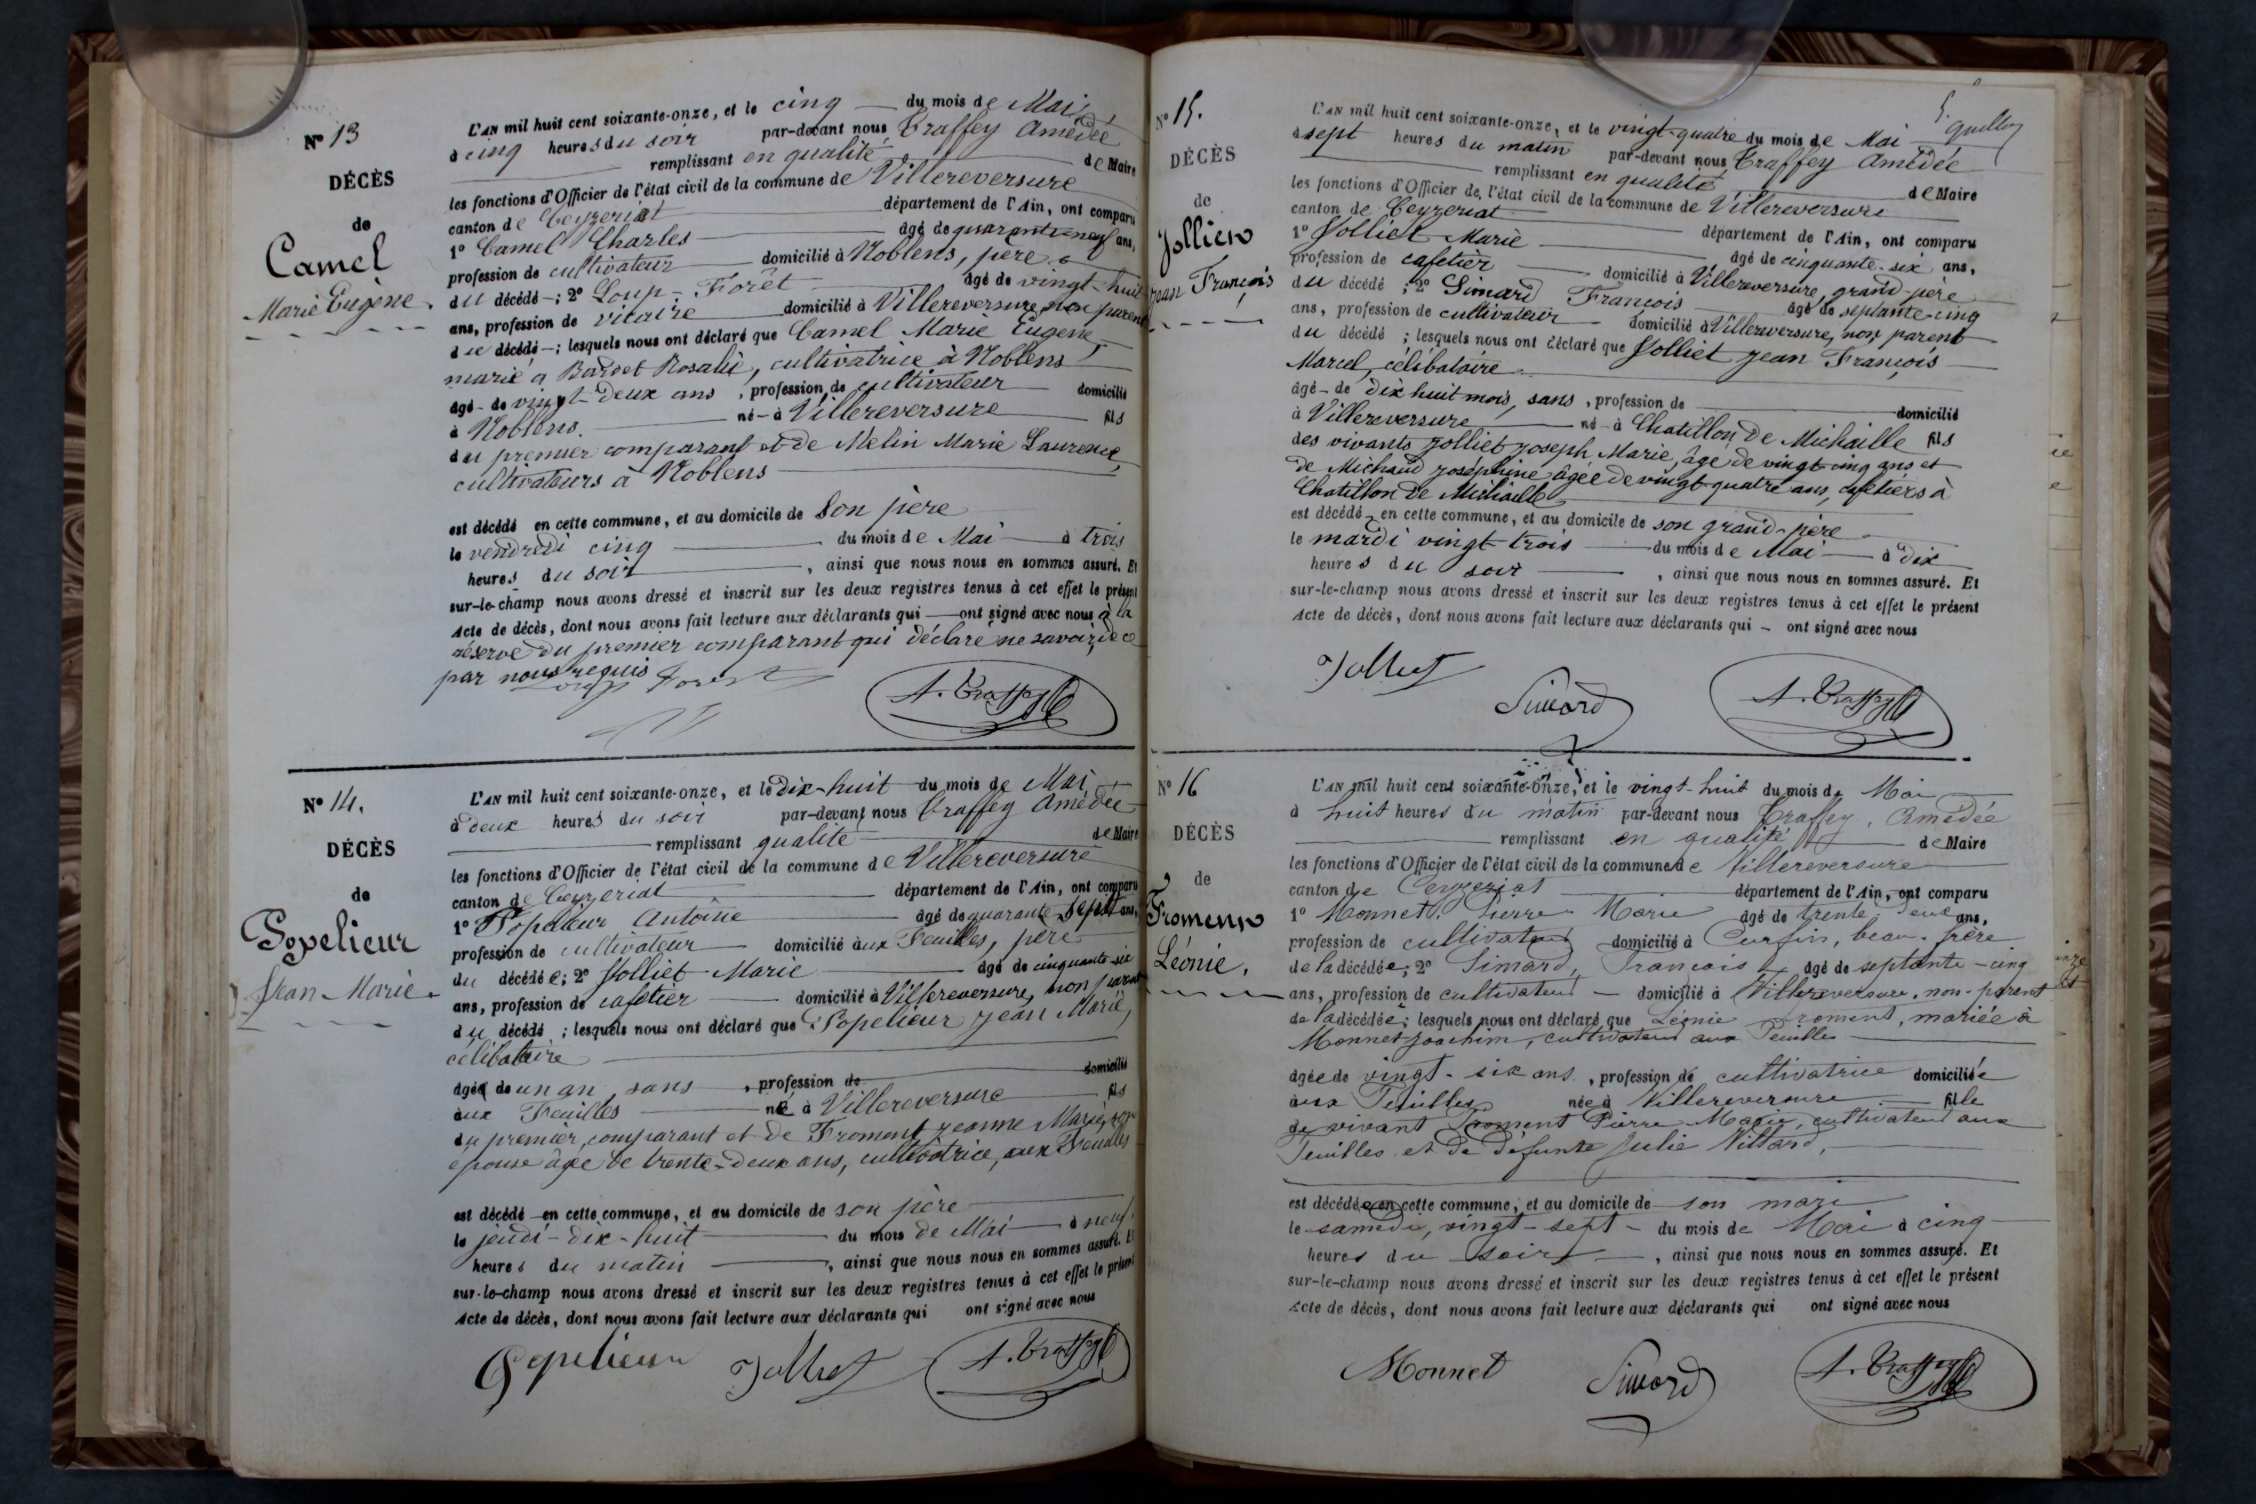 Nº 13
DÉCÈS
de
Camel
Marie Eugène.
L'AN mil huit cent soixante-onze, et le cinq du mois de Mai,
à cinq heures du soir par-devant nous Traffey Amédée
remplissant en qualité de Maire
les fonctions d'Officier de l'état civil de la commune de Villereversure
canton de Ceyzeriat département de l'Ain, ont comparu
1º Camel Charles âgé de quarante-neuf ans,
profession de cultivateur domicilié à Noblens, père
du décédé ; 2º Loup-Forêt âgé de vingt-huit
ans, profession de vicaire domicilié à Villereversure, non parent
du décédé ; lesquels nous ont déclaré que Camel Marie Eugène
marié à Bardet Rosalie, cultivatrice à Noblens
âgé de vingt-deux ans, profession de cultivateur domicilié
à Noblens. né à Villereversure fils
du premier comparant et de Melin Marie Laurence,
cultivateurs à Noblens
est décédé en cette commune, et au domicile de son père
le vendredi cinq du mois de Mai à trois
heures du soir, ainsi que nous nous en sommes assuré. Et
sur-le-champ nous avons dressé et inscrit sur les deux registres tenus à cet effet le présent
Acte de décès, dont nous avons fait lecture aux déclarants qui ont signé avec nous à la
réserve du premier comparant qui déclare ne savoir, de ce
par nous requis
Loup Forest A. Traffey
Nº 14.
DÉCÈS
de
Popelieur
Jean-Marie.
L'AN mil huit cent soixante-onze, et le dix-huit du mois de Mai,
à deux heures du soir par-devant nous Traffey Amédée
remplissant qualité de Maire
les fonctions d'Officier de l'état civil de la commune de Villereversure
canton de Ceyzeriat département de l'Ain, ont comparu
1º Popelieur Antoine âgé de quarante sept ans,
profession de cultivateur domicilié aux Feuilles, père
du décédé ; 2º Jolliet Marie âgé de cinquante-six
ans, profession de cafetier domicilié à Villereversure, non parent
du décédé ; lesquels nous ont déclaré que Popelieur Jean Marie,
célibataire
âgé de un an sans, profession de domicilié
aux Feuilles né à Villereversure fils
du premier comparant et de Froment Jeanne Marie, son
épouse âgée de trente-deux ans, cultivatrice, aux Feuilles
est décédé en cette commune, et au domicile de son père
le jeudi-dix-huit du mois de Mai à neuf
heures du matin, ainsi que nous nous en sommes assuré. Et
sur-le-champ nous avons dressé et inscrit sur les deux registres tenus à cet effet le présent
Acte de décès, dont nous avons fait lecture aux déclarants qui ont signé avec nous
Popelieur Jolliet A. Traffey
Nº 15.
DÉCÈS
de
Jolliet
Jean François
L'AN mil huit cent soixante-onze, et le vingt-quatre du mois de Mai
à sept heures du matin par-devant nous Traffey Amédée
remplissant en qualité de Maire
les fonctions d'Officier de l'état civil de la commune de Villereversure
canton de Ceyzeriat département de l'Ain, ont comparu
1º Jolliet Marie âgé de cinquante-six ans,
profession de cafetier domicilié à Villereversure, grand-père
du décédé ; 2º Simard François âgé de septante-cinq
ans, profession de cultivateur domicilié à Villereversure, non parent
du décédé ; lesquels nous ont déclaré que Jolliet Jean François
Marcel, célibataire
âgé de dix huit mois, sans, profession de domicilié
à Villereversure né à Chatillon de Michaille fils
des vivants Jolliet Joseph Marie, âgé de vingt-cinq ans et
de Michaud Joséphine âgée de vingt-quatre ans, cafetiers à
Chatillon de Michaille
est décédé en cette commune, et au domicile de son grand-père
le mardi vingt-trois du mois de Mai à dix
heures du soir, ainsi que nous nous en sommes assuré. Et
sur-le-champ nous avons dressé et inscrit sur les deux registres tenus à cet effet le présent
Acte de décès, dont nous avons fait lecture aux déclarants qui ont signé avec nous
Jolliet
Simard A. Traffey
Nº 16
DÉCÈS
de
Froment
Léonie.
L'AN mil huit cent soixante-onze, et le vingt-huit du mois de Mai
à huit heures du matin par-devant nous Traffey, Amédée
remplissant en qualité de Maire
les fonctions d'Officier de l'état civil de la commune de Villereversure
canton de Ceyzeriat département de l'Ain, ont comparu
1º Monnet, Pierre Marie âgé de trente deux ans,
profession de cultivateur domicilié à Curfin, beau-frère
de la décédée ; 2º Simard, François âgé de septante-cinq
ans, profession de cultivateur domicilié à Villereversure, non-parent
de la décédée ; lesquels nous ont déclaré que Léonie Froment, mariée à
Monnet Joachim, cultivateur aux Feuilles
âgée de vingt-six ans, profession de cultivatrice domiciliée
aux Feuilles née à Villereversure fille
de vivant Froment Pierre Marie, cultivateur aux
Feuilles et de défunte Julie Villard,
est décédée en cette commune, et au domicile de son mari
le samedi, vingt-sept du mois de Mai à cinq
heures du soir, ainsi que nous nous en sommes assuré. Et
sur-le-champ nous avons dressé et inscrit sur les deux registres tenus à cet effet le présent
Acte de décès, dont nous avons fait lecture aux déclarants qui ont signé avec nous
Monnet Simard A. Traffey